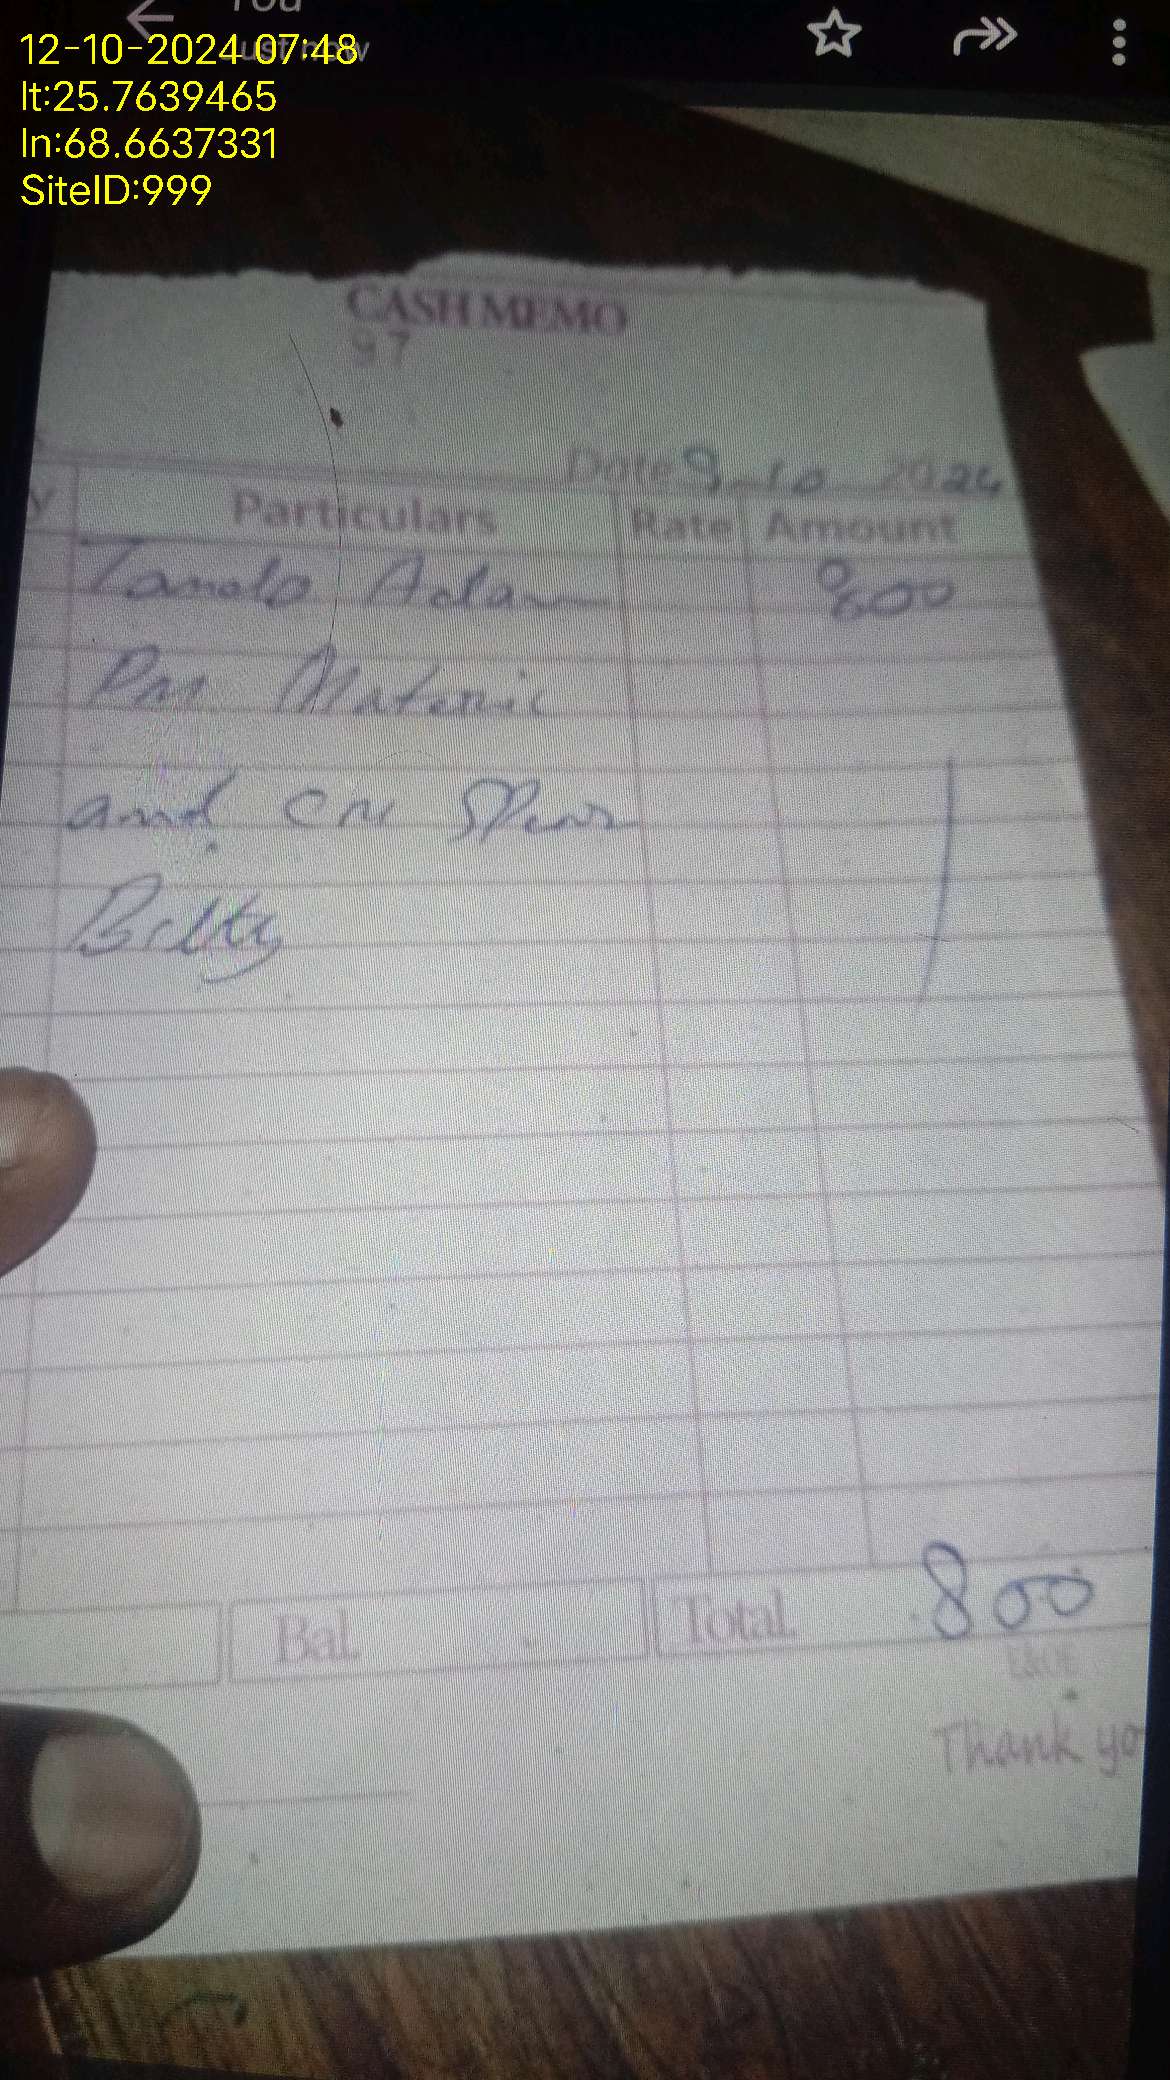 You
Just now
12-10-2024 07:48
lt:25.7639465
ln:68.6637331
SiteID:999
CASH MEMO
97
Date 9-10 2024
y Particulars Rate Amount
Tando Adam 800
PM Materic
and
Bilty
Bal. Total. 800
E&OE
Thank yo